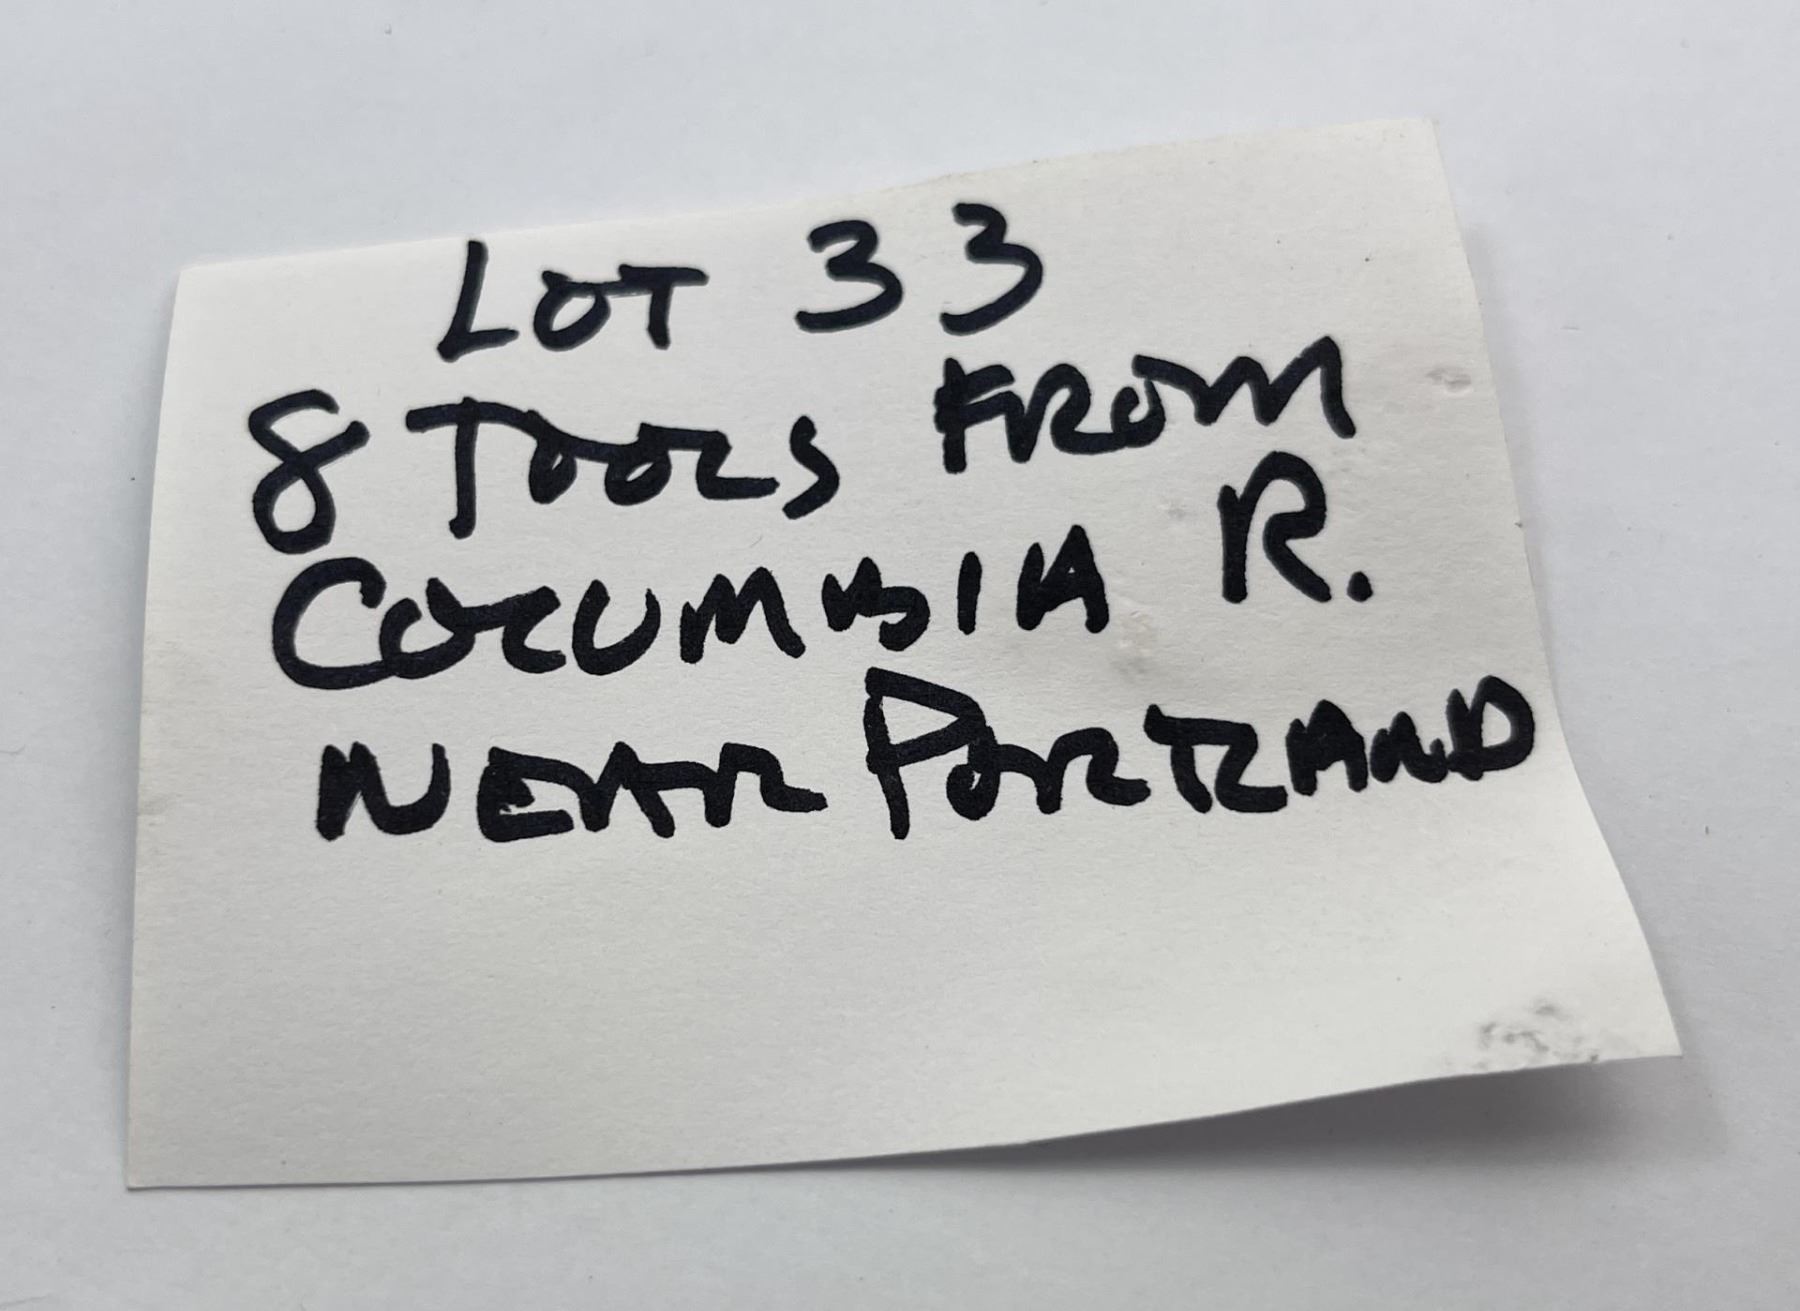 LOT 33
8 TOOLS FROM
COLUMBIA R.
NEAR PORTLAND